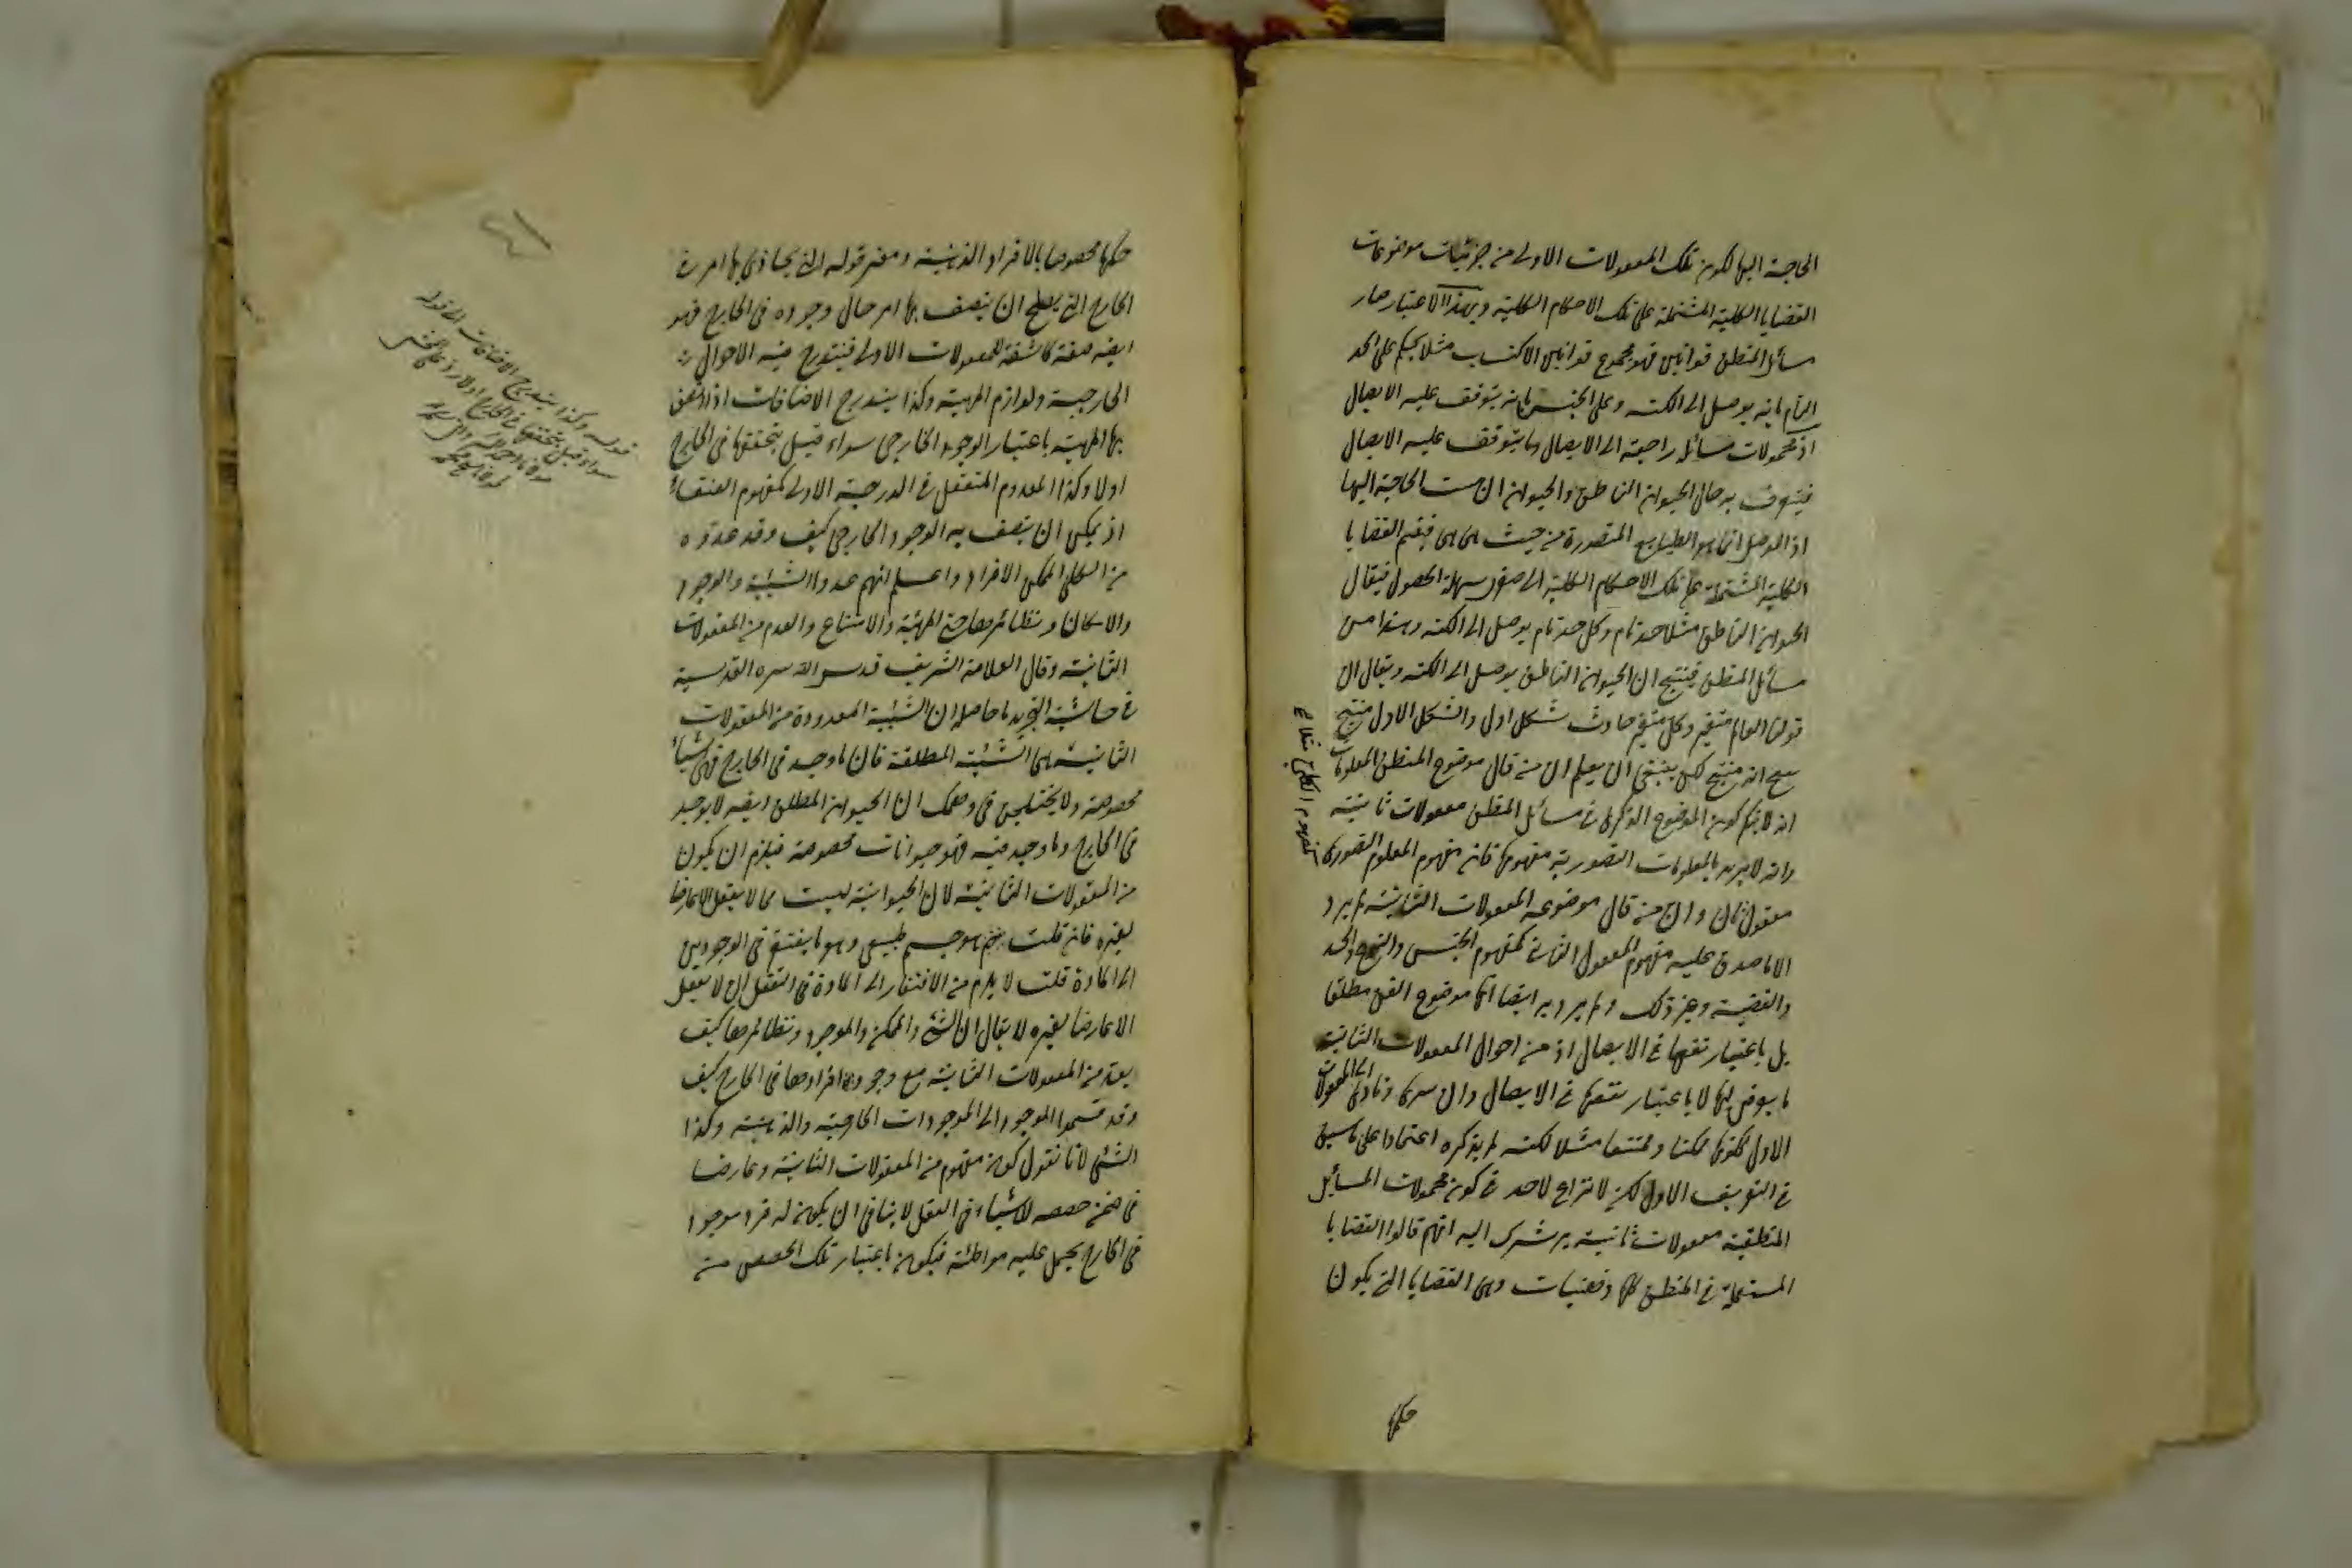 الحاجة اليها لكون تلك المعقولات الاولى من جزئيات موضوعات
القضايا الكلية المشتملة على تلك الاحكام الكلية وبهذا الاعتبار صار
مسائل المنطق قوانين فهو مجموع قوانين الاكتساب مثلا يحكم على الحد
التام بانه يوصل الى الكنه وعلى الجنس بانه يتوقف عليه الايصال
اذ محمولات مسائله راجعة الى الايصال وما يتوقف عليه الايصال
فيتعرف به حال الحيوان الناطق والحيوان ان مست الحاجة اليها
اذ الموصل انما هو الطبايع المتصورة من حيث هى هى فيضم القضايا
الكلية المشتملة على تلك الاحكام الكلية الى صغرى سهلة الحصول فيقال
الحيوان الناطق مثلا حد تام وكل حد تام يوصل الى الكنه وهذا من
مسائل المنطق فينتج ان الحيوان الناطق يوصل الى الكنه ويقال ان
قولنا العالم متغير وكل متغير حادث شكل اول والشكل الاول منتج
ينتج انه منتج لكن ينبغى ان يعلم ان من قال موضوع المنطق المعلومات
انه لا يحكم كون الموضوع الذكرى فى مسائل المنطق معقولات ثانية
وانه لا يريد بالمعلومات التصورية مفهومها فان مفهوم المعلوم التصورى
كمفهوم الكلى مثلا
معقول ثان وان من قال موضوعه المعقولات الثانية لم يرد
الا ما صدق عليه مفهوم المعقول الثانى كمفهوم الجنس والنوع والحد
والقضية وغير ذلك ولم يرد به ايضا انها موضوع الفن مطلقا
بل باعتبار نفعها فى الايصال اذ من احوال المعقولات الثانية
ما يعرض لها لا باعتبار نفعها فى الايصال وان سرى وتأدى الى المعقولات
الاولى ككونها ممكنا وممتنعا مثلا لكنه لم يذكره اعتمادا على ما سبق
فى التعريف الاول لكن لا نزاع لاحد فى كون محمولات المسائل
المنطقية معقولات ثانية يرشدك اليه انهم قالوا القضايا
المستعملة فى المنطق كلها ذهنيات وهى القضايا التى يكون
حكمها
حكمها مخصوصا بالافراد الذهنية ومعنى قوله التى يحاذى بها امر فى
الخارج التى يصلح ان يتصف بها امر حال وجوده فى الخارج فهو
ايضا صفة كاشفة للمعقولات الاولى فيندرج فيه الاحوال
الخارجية ولوازم المهية وكذا يندرج الاضافات اذ اتصف
بها المهية باعتبار الوجود الخارجى سواء قيل بتحققها فى الخارج
اولا وكذا المعدوم المتعقل فى الدرجة الاولى كمفهوم العنقاء
اذ يمكن ان يتصف به الوجود الخارجى كيف وقد عدوه
من الكلى الممكن الافراد واعلم انهم عدوا الشيئية والوجود
والامكان ونظائرها حتى المهية والامتناع والعدم من المعقولات
الثانية وقال العلامة الشريف قدس الله سره القدسية
فى حاشية التجريد ما حاصله ان الشيئية المعدودة من المعقولات
الثانية هى الشيئية المطلقة فان ما وجد فى الخارج فهى اشياء
مخصوصة ولا يختلجن فى وهمك ان الحيوان المطلق ايضا لا يوجد
فى الخارج وما وجد فيه فهو حيوانات مخصوصة فيلزم ان يكون
من المعقولات الثانية لان الحيوانية ليست مما لا يعقل الا عارضا
لغيره فان قلت هو جسم طبيعى وهو ما يفتقر فى الوجودين
الى المادة قلت لا يلزم من الافتقار الى المادة فى التعقل ان لا يعقل
الا عارضا لغيره لا يقال ان الشئ والممكن والموجود ونظائرها كيف
يعد من المعقولات الثانية مع وجود افرادها فى الخارج كيف
وقد قسموا الموجود الى الموجودات الخارجية والذهنية وكذا
الشئ لانا نقول كون مفهوم من المعقولات الثانية وعارضا
فى ضمن حصصه للاشياء فى العقل لا ينافى ان يكون له فرد موجود
فى الخارج يحمل عليه مواطئة فيكون باعتبار تلك الحصص من
قوله وكذا يندرج الاضافات الى قوله
سواء قيل بتحققها فى الخارج اولا